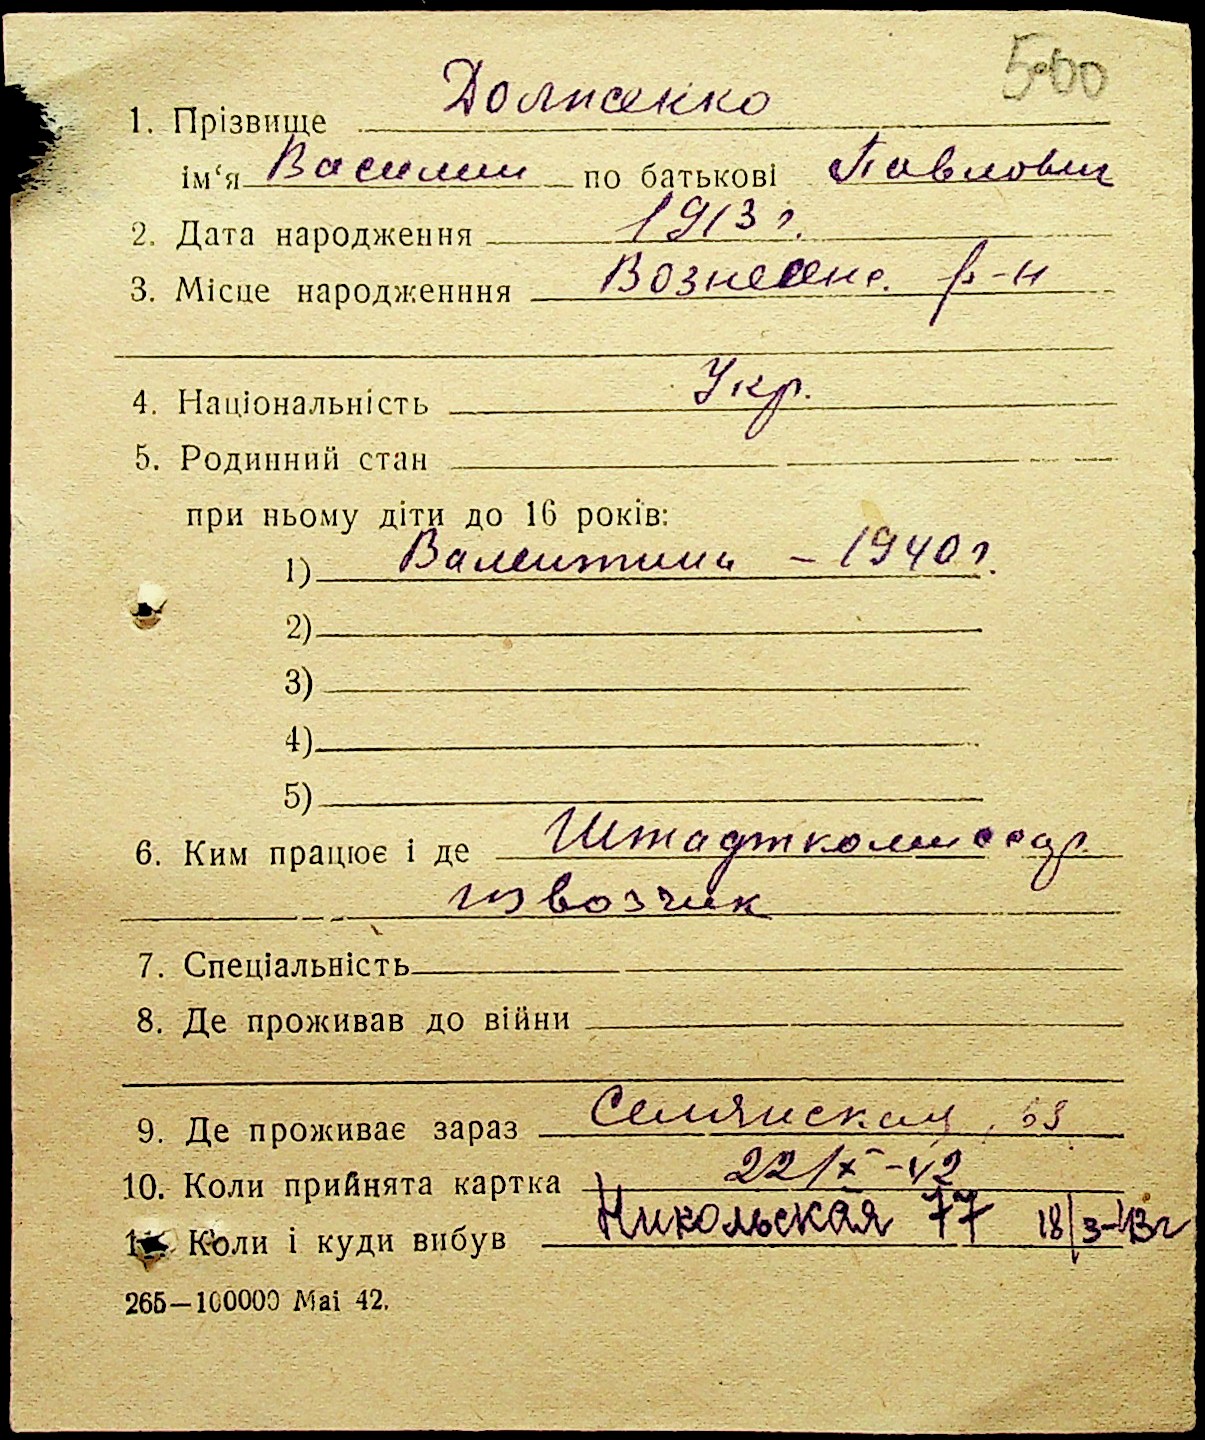 500
Долженко
1. Прізвище
ім‘я Василий по батькові Павлович
2. Дата народження 1913 г.
3. Місце народженння Вознесенс. р-н
4. Національність Укр.
5. Родинний стан
при ньому діти до 16 років:
1) Валентина – 1940 г.
2)
3)
4)
5)
6. Ким працює і де Штадткомиссар.
извозчик
7. Спеціальність
8. Де проживав до війни
9. Де проживає зараз
10. Коли прийнята картка 22/X-42
Коли і куди вибув Никольская 77 18/3-43г
265—100000 Mai 42.